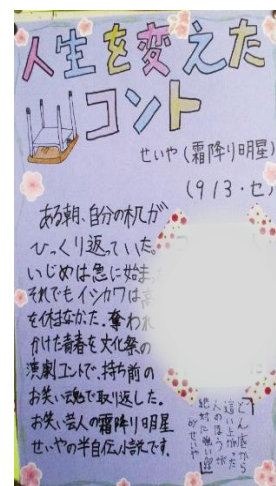 人生を変えた
コント
せいや(霜降り明星)
(913・セ)
ある朝、自分の机が
ひっくり返っていた。
いじめは急に始ま
それでもイシカワは高
を休まなかった。奪われ
かけた青春を文化祭の
演劇コントで、持ち前の
お笑い魂で取り返した。
お笑い芸人の霜降り明星
せいやの半自伝小説です。
どん底から
這い上がった
人のほうが
絶対に強い!!